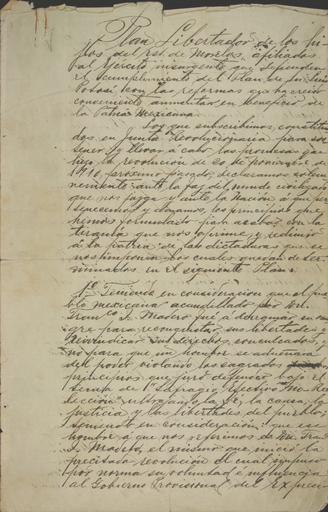 Plan Libertador de los hi-
jos del Est. de Morelos, afiliados
al Ejército insurgente que defienden
el cumplimiento del Plan de San Luis
Potosí con las reformas que ha creido
conveniente aumentar en beneficio de
la Patria Mexicana.
Los que subscribimos, constitui-
dos en Junta Revolucionaria para sos-
tener y llevar á cabo las promesas que
hizo la revolución de 20 de Noviembre de
1910, próximo pasado, declaramos solem-
nemente ante la faz del mundo civilizado
que nos juzga y ante la Nación á que per-
tenecemos y amamos, los principios que
hemos formulado para acabar con la
tiranía que nos oprime y redimir
á la patria de las dictaduras que se
nos imponen las cuales quedan deter-
minadas en el siguiente Plan:
1º Teniendo en consideración que el pue-
blo mexicano acaudillado por Dn.
Franco I. Madero fué á derramar su san-
gre para reconquistar sus libertades y
reivindicar sus derechos conculcados, y
no para que un hombre se adueñara
del poder violando los sagrados
principios que juró defender bajo el
lema de "Sufragio Efectivo" "No Re-
elección" ultrajando la fé, la causa, la
justicia y las libertades del pueblo;
teniendo en consideración: que ese
hombre á que nos referimos es Dn. Franco
I. Madero, el mismo que inició la
precitada revolución el cual impuso
por norma su voluntad é influencia
al Gobierno Provisional del Ex Presi-